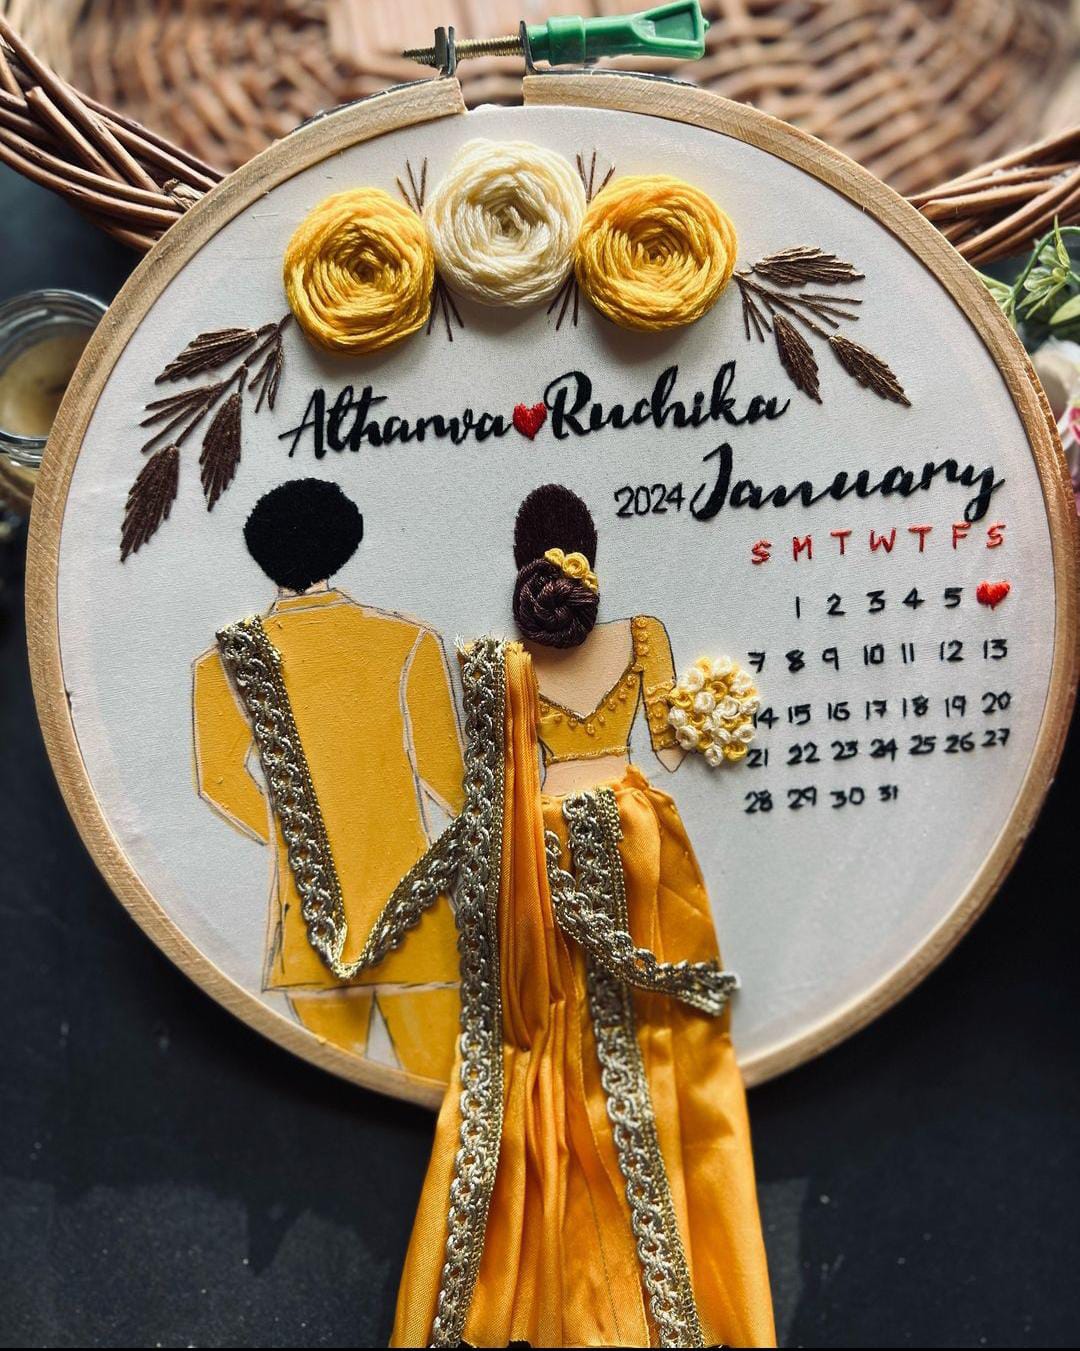 Atharva ❤ Ruchika
2024 January
S M T W T F S
1 2 3 4 5 ❤
7 8 9 10 11 12 13
14 15 16 17 18 19 20
21 22 23 24 25 26 27
28 29 30 31